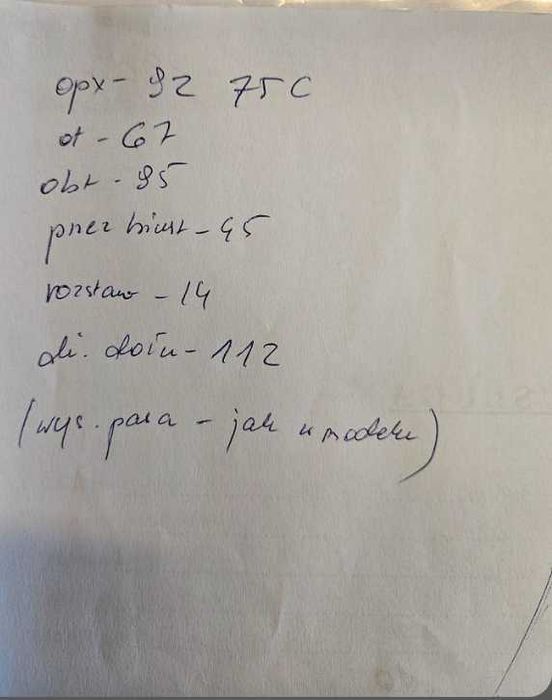 opx - 92 75C
ot - 67
obt - 95
przez biust - 45
rozstaw - 14
dł. dołu - 112
(wys. pasa - jak u modelu)